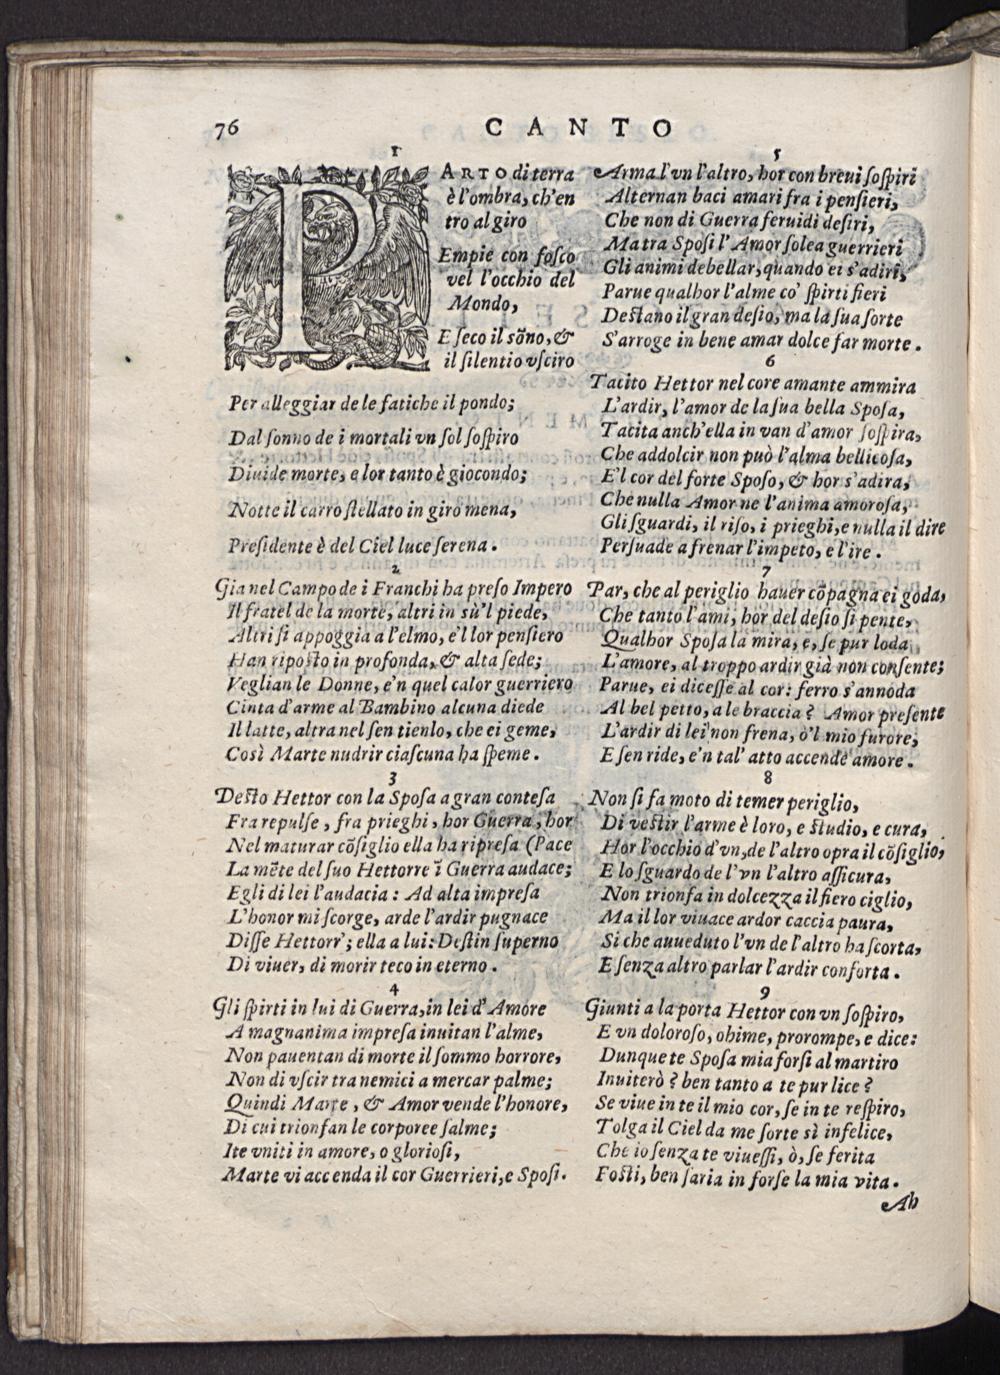 76
CANTO
1
PARTO di terra
è l'ombra, ch'en
tro al giro
Empie con fosco
vel l'occhio del
Mondo,
E seco il sōno, &
il silentio vsciro
Per alleggiar de le fatiche il pondo;
Dal sonno de i mortali vn sol sospiro
Diuide morte, e lor tanto è giocondo;
Notte il carro stellato in giro mena,
Presidente è del Ciel luce serena.
2
Gia nel Campo de i Franchi ha preso Impero
Il fratel de la morte, altri in sù'l piede,
Altri si appoggia a l'elmo, e'l lor pensiero
Han riposto in profonda, & alta sede;
Veglian le Donne, e'n quel calor guerriero
Cinta d'arme al Bambino alcuna diede
Il latte, altra nel sen tienlo, che ei geme,
Così Marte nudrir ciascuna ha speme.
3
Desto Hettor con la Sposa a gran contesa
Fra repulse, fra prieghi, hor Guerra, hor
Nel maturar cōsiglio ella ha ripresa (Pace
La mēte del suo Hettorre ī Guerra audace;
Egli di lei l'audacia: Ad alta impresa
L'honor mi scorge, arde l'ardir pugnace
Disse Hettorr'; ella a lui: Destin superno
Di viuer, di morir teco in eterno.
4
Gli spirti in lui di Guerra, in lei d'Amore
A magnanima impresa inuitan l'alme,
Non pauentan di morte il sommo horrore,
Non di vscir tra nemici a mercar palme;
Quindi Marte, & Amor vende l'honore,
Di cui trionfan le corporee salme;
Ite vniti in amore, o gloriosi,
Marte vi accenda il cor Guerrieri, e Sposi.
5
Arma l'vn l'altro, hor con breui sospiri
Alternan baci amari fra i pensieri,
Che non di Guerra feruidi desiri,
Ma tra Sposi l'Amor solea guerrieri
Gli animi debellar, quando ei s'adiri,
Parue qualhor l'alme co' spirti fieri
Destano il gran desio, ma la sua sorte
S'arroge in bene amar dolce far morte.
6
Tacito Hettor nel core amante ammira
L'ardir, l'amor de la sua bella Sposa,
Tacita anch'ella in van d'amor sospira,
Che addolcir non può l'alma bellicosa,
E'l cor del forte Sposo, & hor s'adira,
Che nulla Amor ne l'anima amorosa,
Gli sguardi, il riso, i prieghi, e nulla il dire
Persuade a frenar l'impeto, e l'ire.
7
Par, che al periglio hauer cōpagna ei goda,
Che tanto l'ami, hor del desio si pente,
Qualhor Sposa la mira, e, se pur loda
L'amore, al troppo ardir già non consente;
Parue, ei dicesse al cor: ferro s'annoda
Al bel petto, a le braccia? Amor presente
L'ardir di lei non frena, ò'l mio furore,
E sen ride, e'n tal' atto accende amore.
8
Non si fa moto di temer periglio,
Di vestir l'arme è loro, e studio, e cura,
Hor l'occhio d'vn, de l'altro opra il cōsiglio,
E lo sguardo de l'vn l'altro assicura,
Non trionfa in dolcezza il fiero ciglio,
Ma il lor viuace ardor caccia paura,
Si che auueduto l'vn de l'altro ha scorta,
E senza altro parlar l'ardir conforta.
9
Giunti a la porta Hettor con vn sospiro,
E vn doloroso, ohime, prorompe, e dice:
Dunque te Sposa mia forsi al martiro
Inuiterò? ben tanto a te pur lice?
Se viue in te il mio cor, se in te respiro,
Tolga il Ciel da me sorte sì infelice,
Che io senza te viuessi, ò, se ferita
Fosti, ben saria in forse la mia vita.
Ah